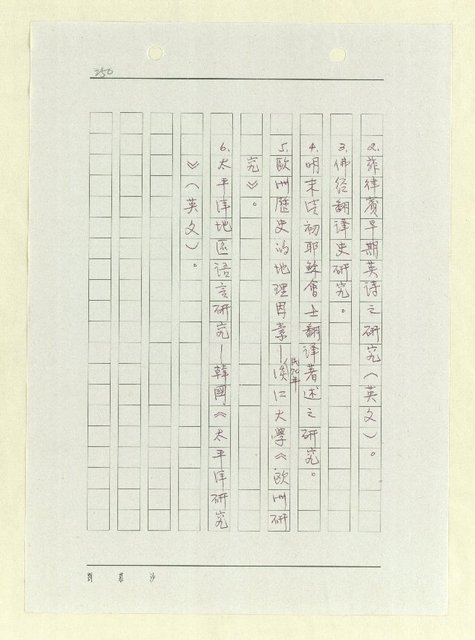 250
2.菲律賓早期英詩之研究（英文）。
3.佛经翻译史研究。
4.明末清初耶穌會士翻译著述之研究。
5.歐洲歷史的地理因素—淡江大學《歐洲研
民76年
究》。
6.太平洋地区语言研究—韓國,《太平洋研究
》（英文）。
劉慕沙